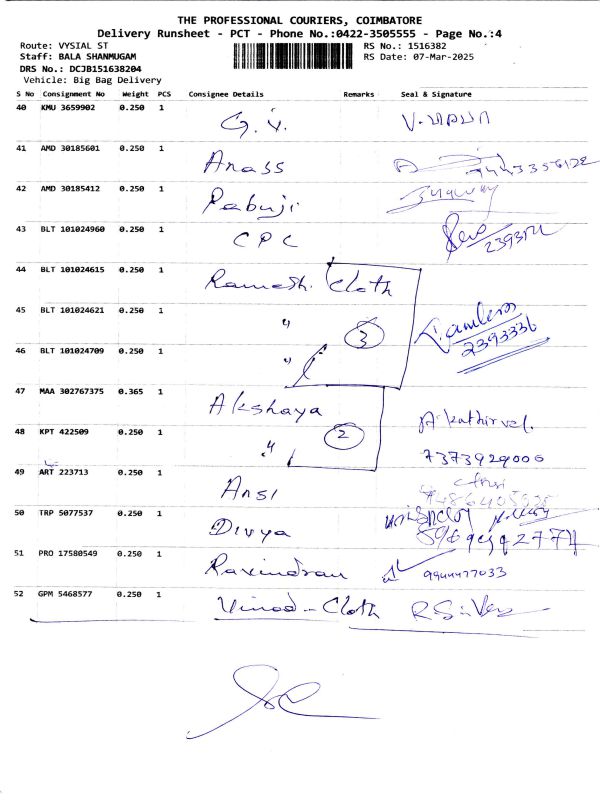 THE PROFESSIONAL COURIERS, COIMBATORE
Delivery Runsheet - PCT - Phone No.:0422-3505555 - Page No.:4
Route: VYSIAL ST RS No.: 1516382
Staff: BALA SHANMUGAM RS Date: 07-Mar-2025
DRS No.: DCJB151638204
Vehicle: Big Bag Delivery
S No Consignment No Weight PCS Consignee Details Remarks Seal & Signature
40 KMU 3659902 0.250 1 G. V.
41 AMD 30185601 0.250 1 Anass
42 AMD 30185412 0.250 1 Pabuji
43 BLT 101024960 0.250 1 CPC
44 BLT 101024615 0.250 1 Ramesh. Cloth
45 BLT 101024621 0.250 1 " 3
46 BLT 101024709 0.250 1 " 2393336
47 MAA 302767375 0.365 1 Akshaya A. Kathirvel.
48 KPT 422509 0.250 1 " 2 7373929000
49 ART 223713 0.250 1 Ansi
50 TRP 5077537 0.250 1 Divya
51 PRO 17580549 0.250 1 Ravindran 9944477033
52 GPM 5468577 0.250 1 Vinod - Cloth